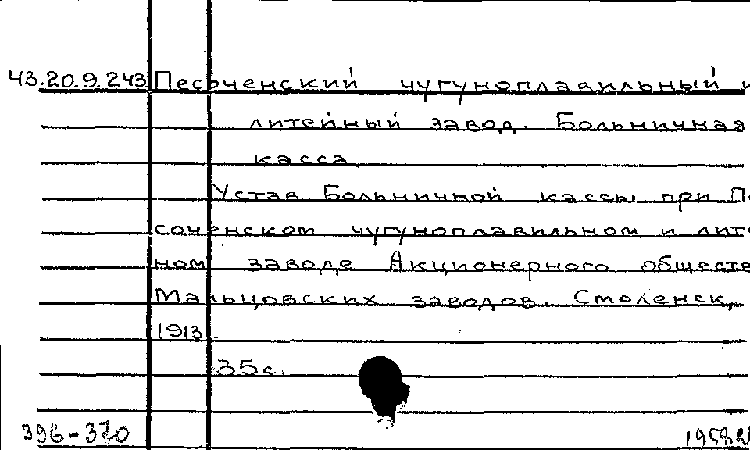 43.20.9.243 Песоченский чугуноплавильный и
литейный завод. Больничная
касса
Устав Больничной кассы при Пе
соченском чугуноплавильном и лите
ном заводе Акционерного обществ
Мальцовских заводов. Смоленск,
1913
35с.
396-370